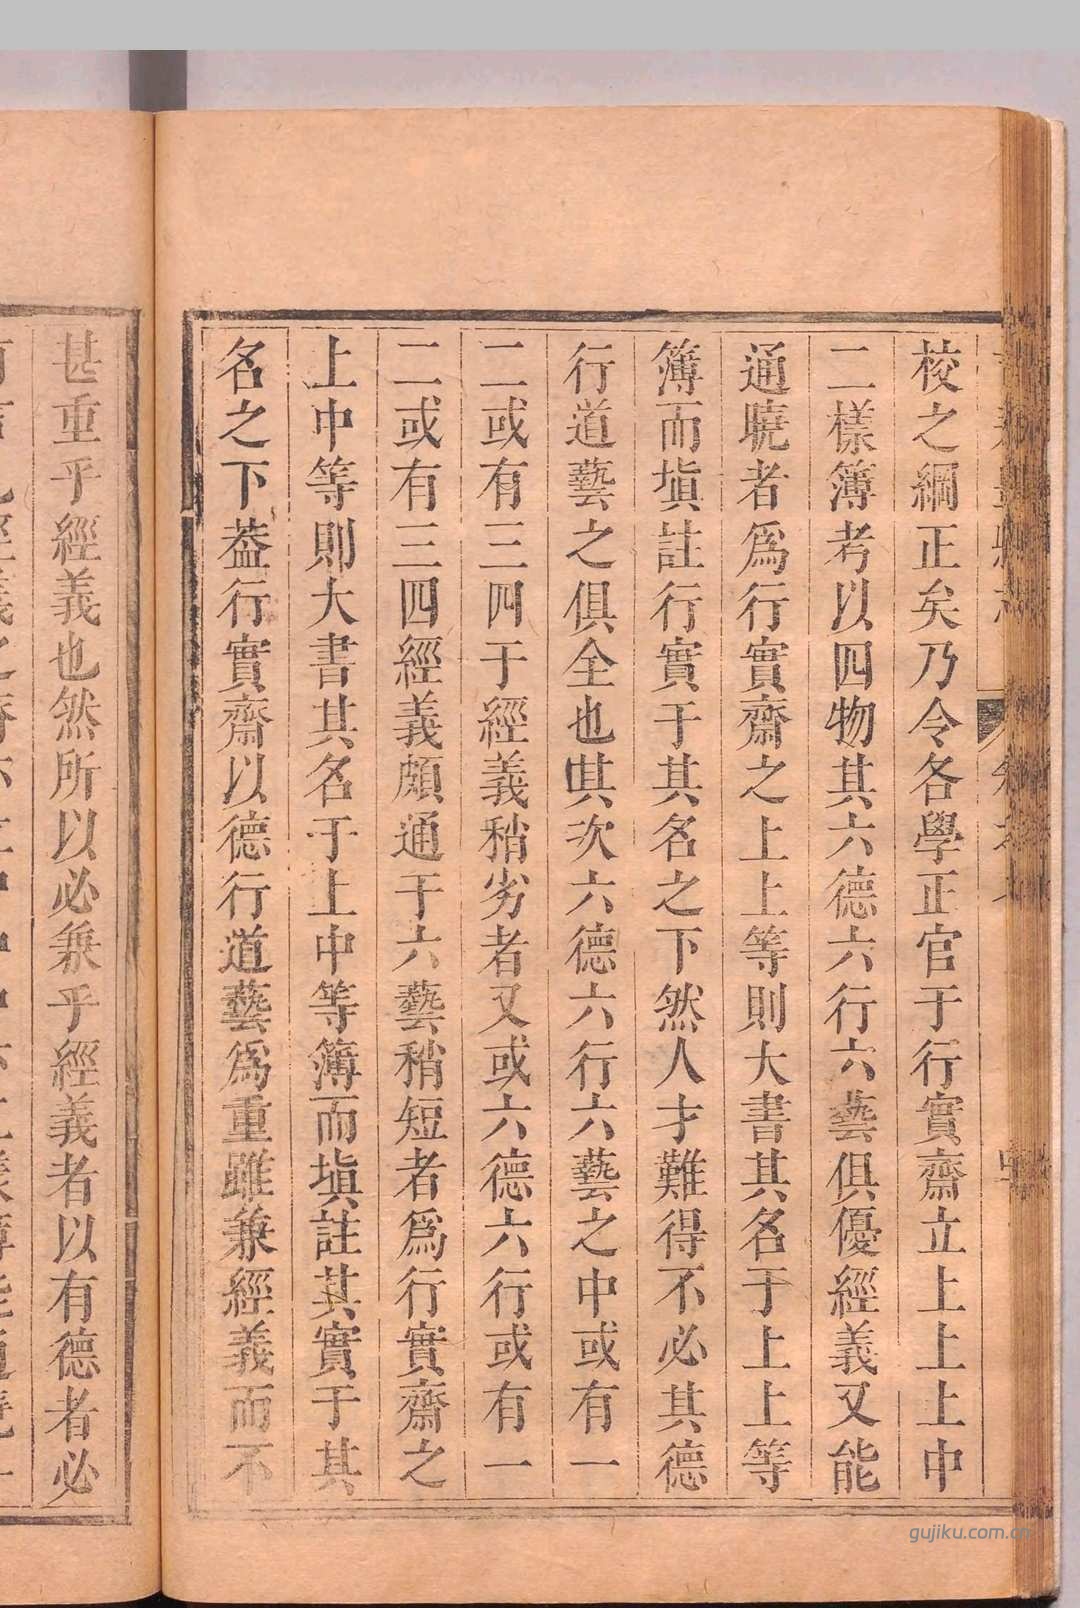 校之綱正矣乃令各學正官于行實齋立上上上中
二樣簿考以四物其六德六行六藝俱優經義又能
通曉者爲行實齋之上上等則大書其名于上上等
簿而塡註行實于其名之下然人才難得不必其德
行道藝之俱全也其次六德六行六藝之中或有一
二或有三四于經義稍劣者又或六德六行或有一
二或有三四經義頗通于六藝稍短者爲行實齋之
上中等則大書其名于上中等簿而塡註其實于其
名之下葢行實齋以德行道藝爲重雖兼經義而不
甚重乎經義也然所以必兼乎經義者以有德者必
gujiku.com.cn